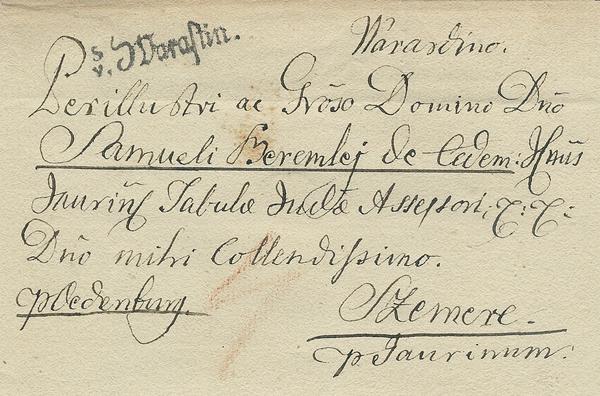 S. v. Warastin.
Warardino.
Perillustri ac Grőso Domino Dnő
Samueli Beremlej de Eadem: I. Cottus
Jaurin Tabulæ Judæ Assessori, T: T:
Dnő mihi Collendissimo.
p Oedenburg.
Szemere.
p Jaurinum: